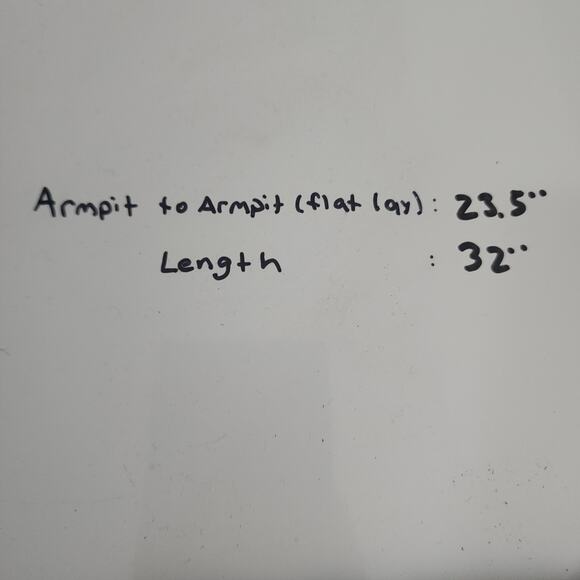 Armpit to Armpit (flat lay): 23.5"
Length : 32"